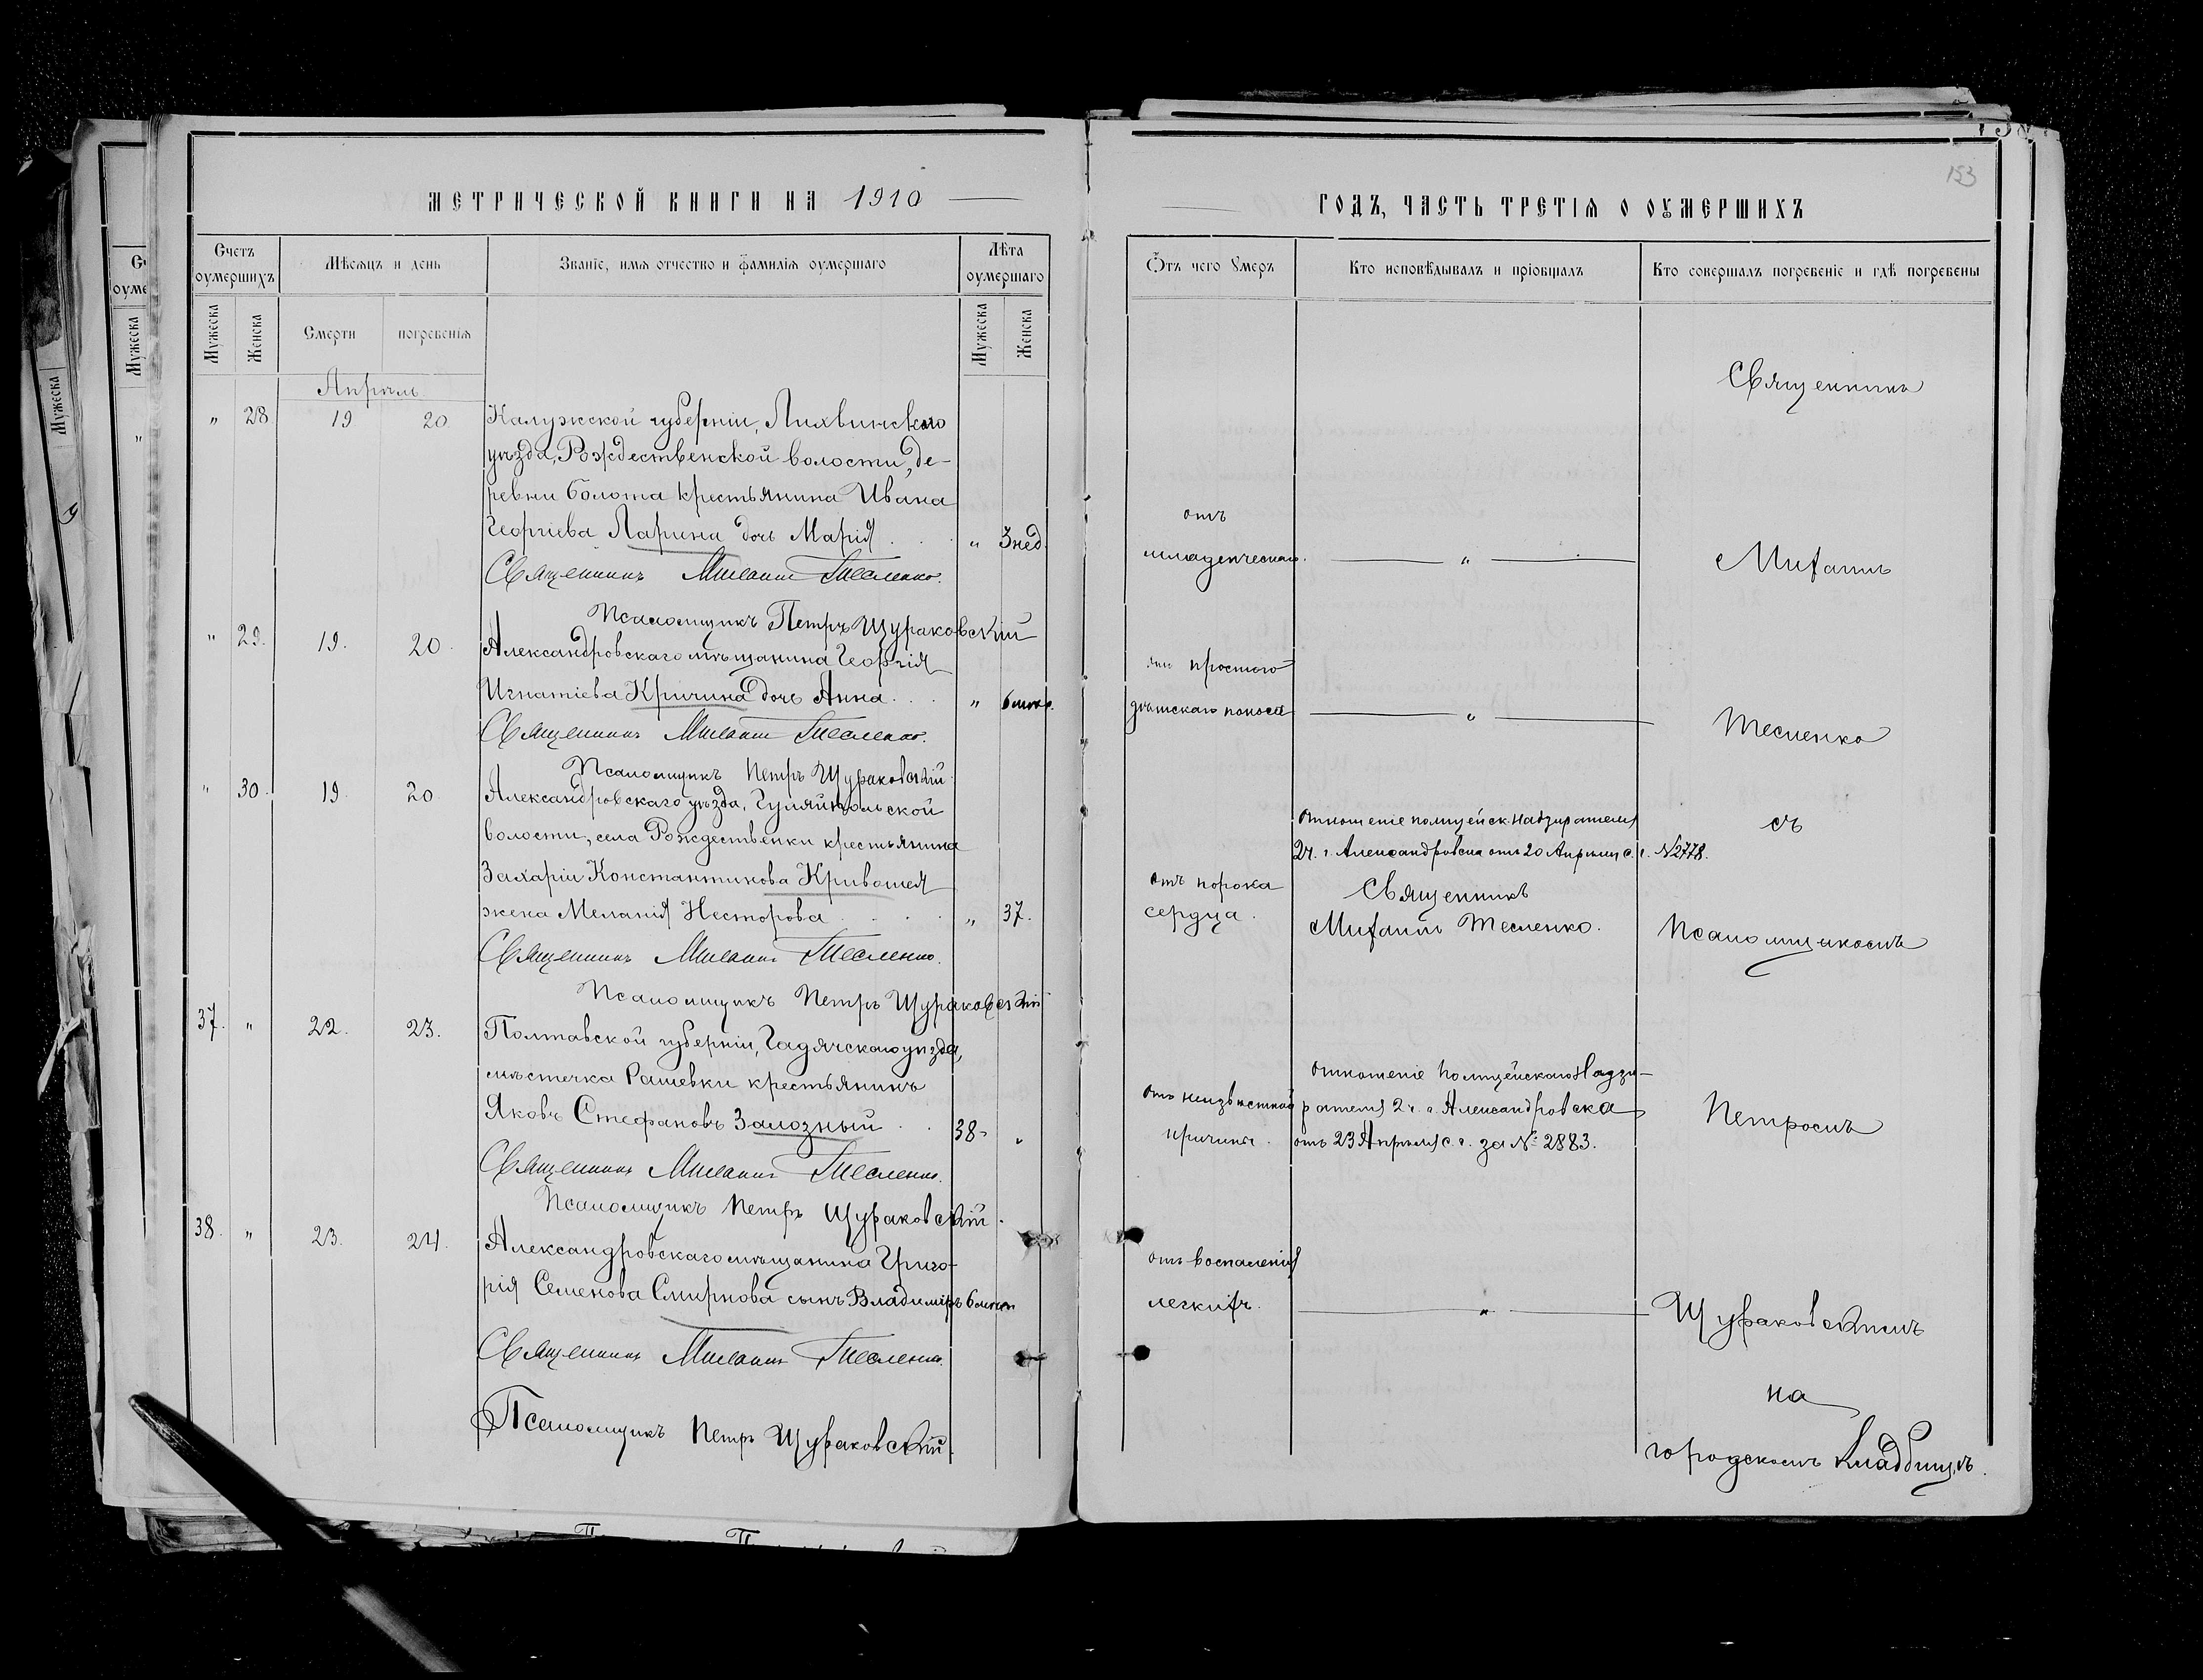 МЕТРИЧЕСКОЙ КНИГИ НА 1910
Счетъ оумершихъ
Мѣсяцъ и день
Званїе, имя отчество и фамилїя оумершаго
Лѣта оумершаго
Мужеска
Женска
Смерти
погребенїя
Мужеска
Женска
Апрѣль
" 28 19 20. Калужской губерніи, Лихвинскаго
уѣзда, Рождественской волости, де-
ревни Болота крестьянина Ивана
Георгіева Ларина дочь Марія . . . " 3 нед.
Священникъ Михаилъ Тесленко.
Псаломщикъ Петръ Щураковскій
" 29. 19. 20. Александровскаго мѣщанина Георгія
Игнатіева Кричина дочь Анна . . . "
Священникъ Михаилъ Тесленко.
Псаломщикъ Петръ Щураковскій.
" 30. 19. 20 Александровскаго уѣзда, Гуляйпольской
волости, села Рождественки крестьянина
Захаріи Константинова Кривошея
жена Меланія Несторова . . . . " 37.
Священникъ Михаилъ Тесленко.
Псаломщикъ Петръ Щураковскій
37. " 22. 23. Полтавской губерніи, Гадячскаго уѣзда,
мѣстечка Рашевки крестьянинъ
Яковъ Стефановъ Залозный . . 38- "
Священникъ Михаилъ Тесленко.
Псаломщикъ Петръ Щураковскій.
38. " 23. 24. Александровскаго мѣщанина Григо-
рія Семенова Смирнова сынъ Владиміръ
Священникъ Михаилъ Тесленко.
Псаломщикъ Петръ Щураковскій.
153
ГОДЪ, ЧАСТЬ ТРЕТІЯ О ОУМЕРШИХЪ
Ѿтъ чего Умеръ
Кто исповѣдывалъ и прїобщалъ
Кто совершалъ погребенїе и гдѣ погребены
Священникъ
отъ
младенческаго. — " — Михаилъ
отъ простого
дѣтскаго поноса — " — Тесленко
Отношеніе полицейск. Надзирателя
2 ч. г. Александровска отъ 20 Апрѣля с. г. № 2778.
съ
отъ порока
сердца.
Священникъ
Михаилъ Тесленко.
Псаломщикомъ
отъ неизвѣстной
причины.
Отношеніе Полицейскаго Надзи-
рателя 2 ч. г. Александровска
отъ 23 Апрѣля с. г. за № 2883.
Петромъ
отъ воспаленія
легкихъ. — " — Щураковскимъ
на
городскомъ кладбищѣ.